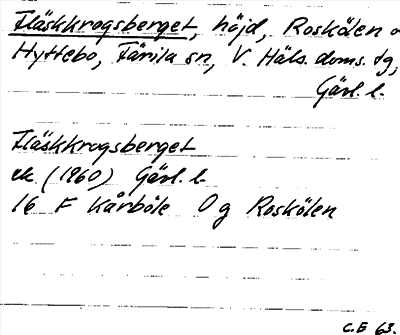 Fläskkrogsberget, höjd, Roskölen o
Hyttebo, Färila sn, V. Häls. doms. tg,
Gävl. l.
Fläskkrogsberget
ek (1960) Gävl. l.
16 F Kårböle 0 g Roskölen
C.E 63.